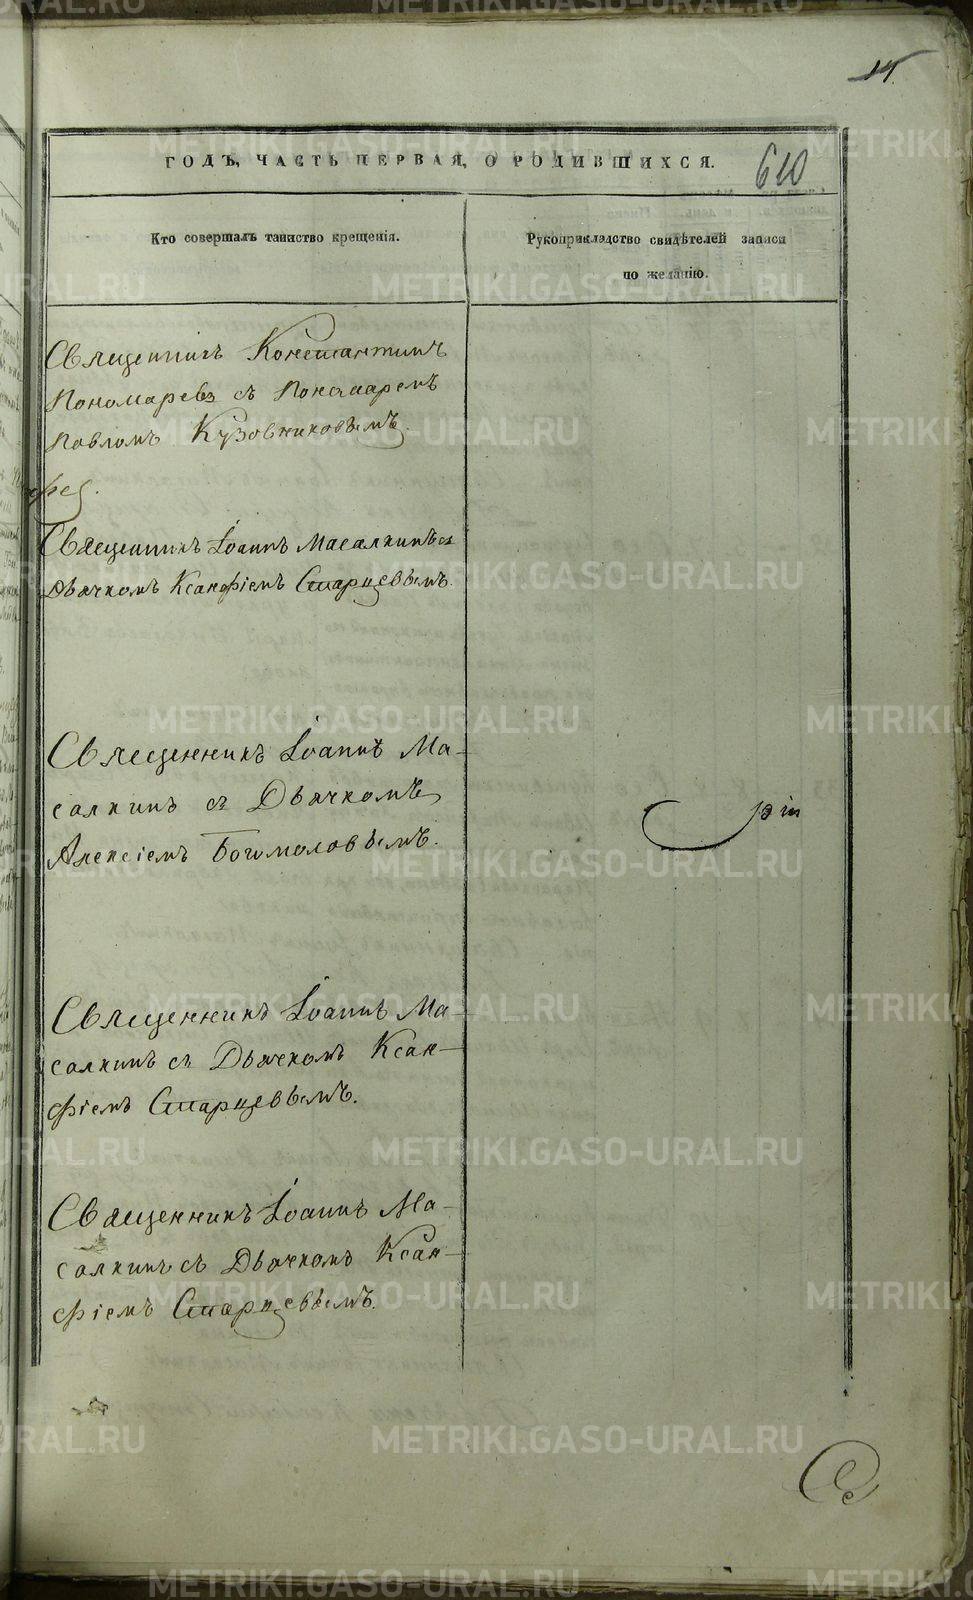 14.
ГОДЪ, ЧАСТЬ ПЕРВАЯ, О РОДИВШИХСЯ.
610
Кто совершалъ таинство крещенія.
Рукоприкладство свидѣтелей записи
по желанію.
Священникъ Константинъ
Пономаревъ съ Пономаремъ
Павломъ Кузовниковымъ.
Священникъ Іоаннъ Масалкинъ съ
Дьячкомъ Ксанфіемъ Старцевымъ.
Священникъ Іоаннъ Ма-
салкинъ съ Дьячкомъ
Алексіемъ Богомоловымъ.
Священникъ Іоаннъ Ма-
салкинъ съ Дьячкомъ Ксан-
фіемъ Старцевымъ.
Священникъ Іоаннъ Ма-
салкинъ съ Дьячкомъ Ксан-
фіемъ Старцевымъ.
METRIKI.GASO-URAL.RU